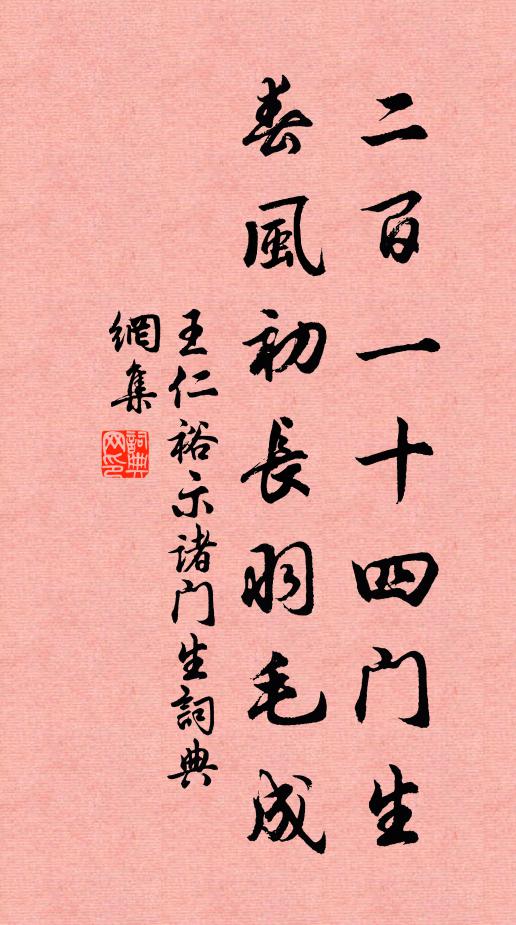 二百一十四门生
春風初長羽毛成
王仁裕示诸门生詞典
網集
詞典网印